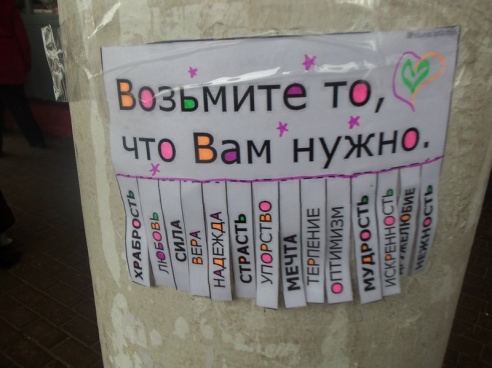 Возьмите то,
что Вам нужно.
ХРАБРОСТЬ
ЛЮБОВЬ
СИЛА
ВЕРА
НАДЕЖДА
СТРАСТЬ
УПОРСТВО
МЕЧТА
ТЕРПЕНИЕ
ОПТИМИЗМ
МУДРОСТЬ
ИСКРЕННОСТЬ
ДРУЖЕЛЮБИЕ
НЕЖНОСТЬ